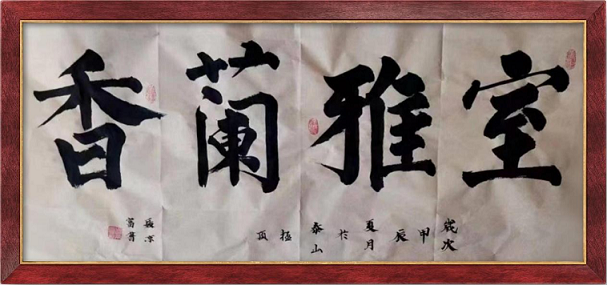 室雅蘭香
歲次甲辰夏月於泰山極頂